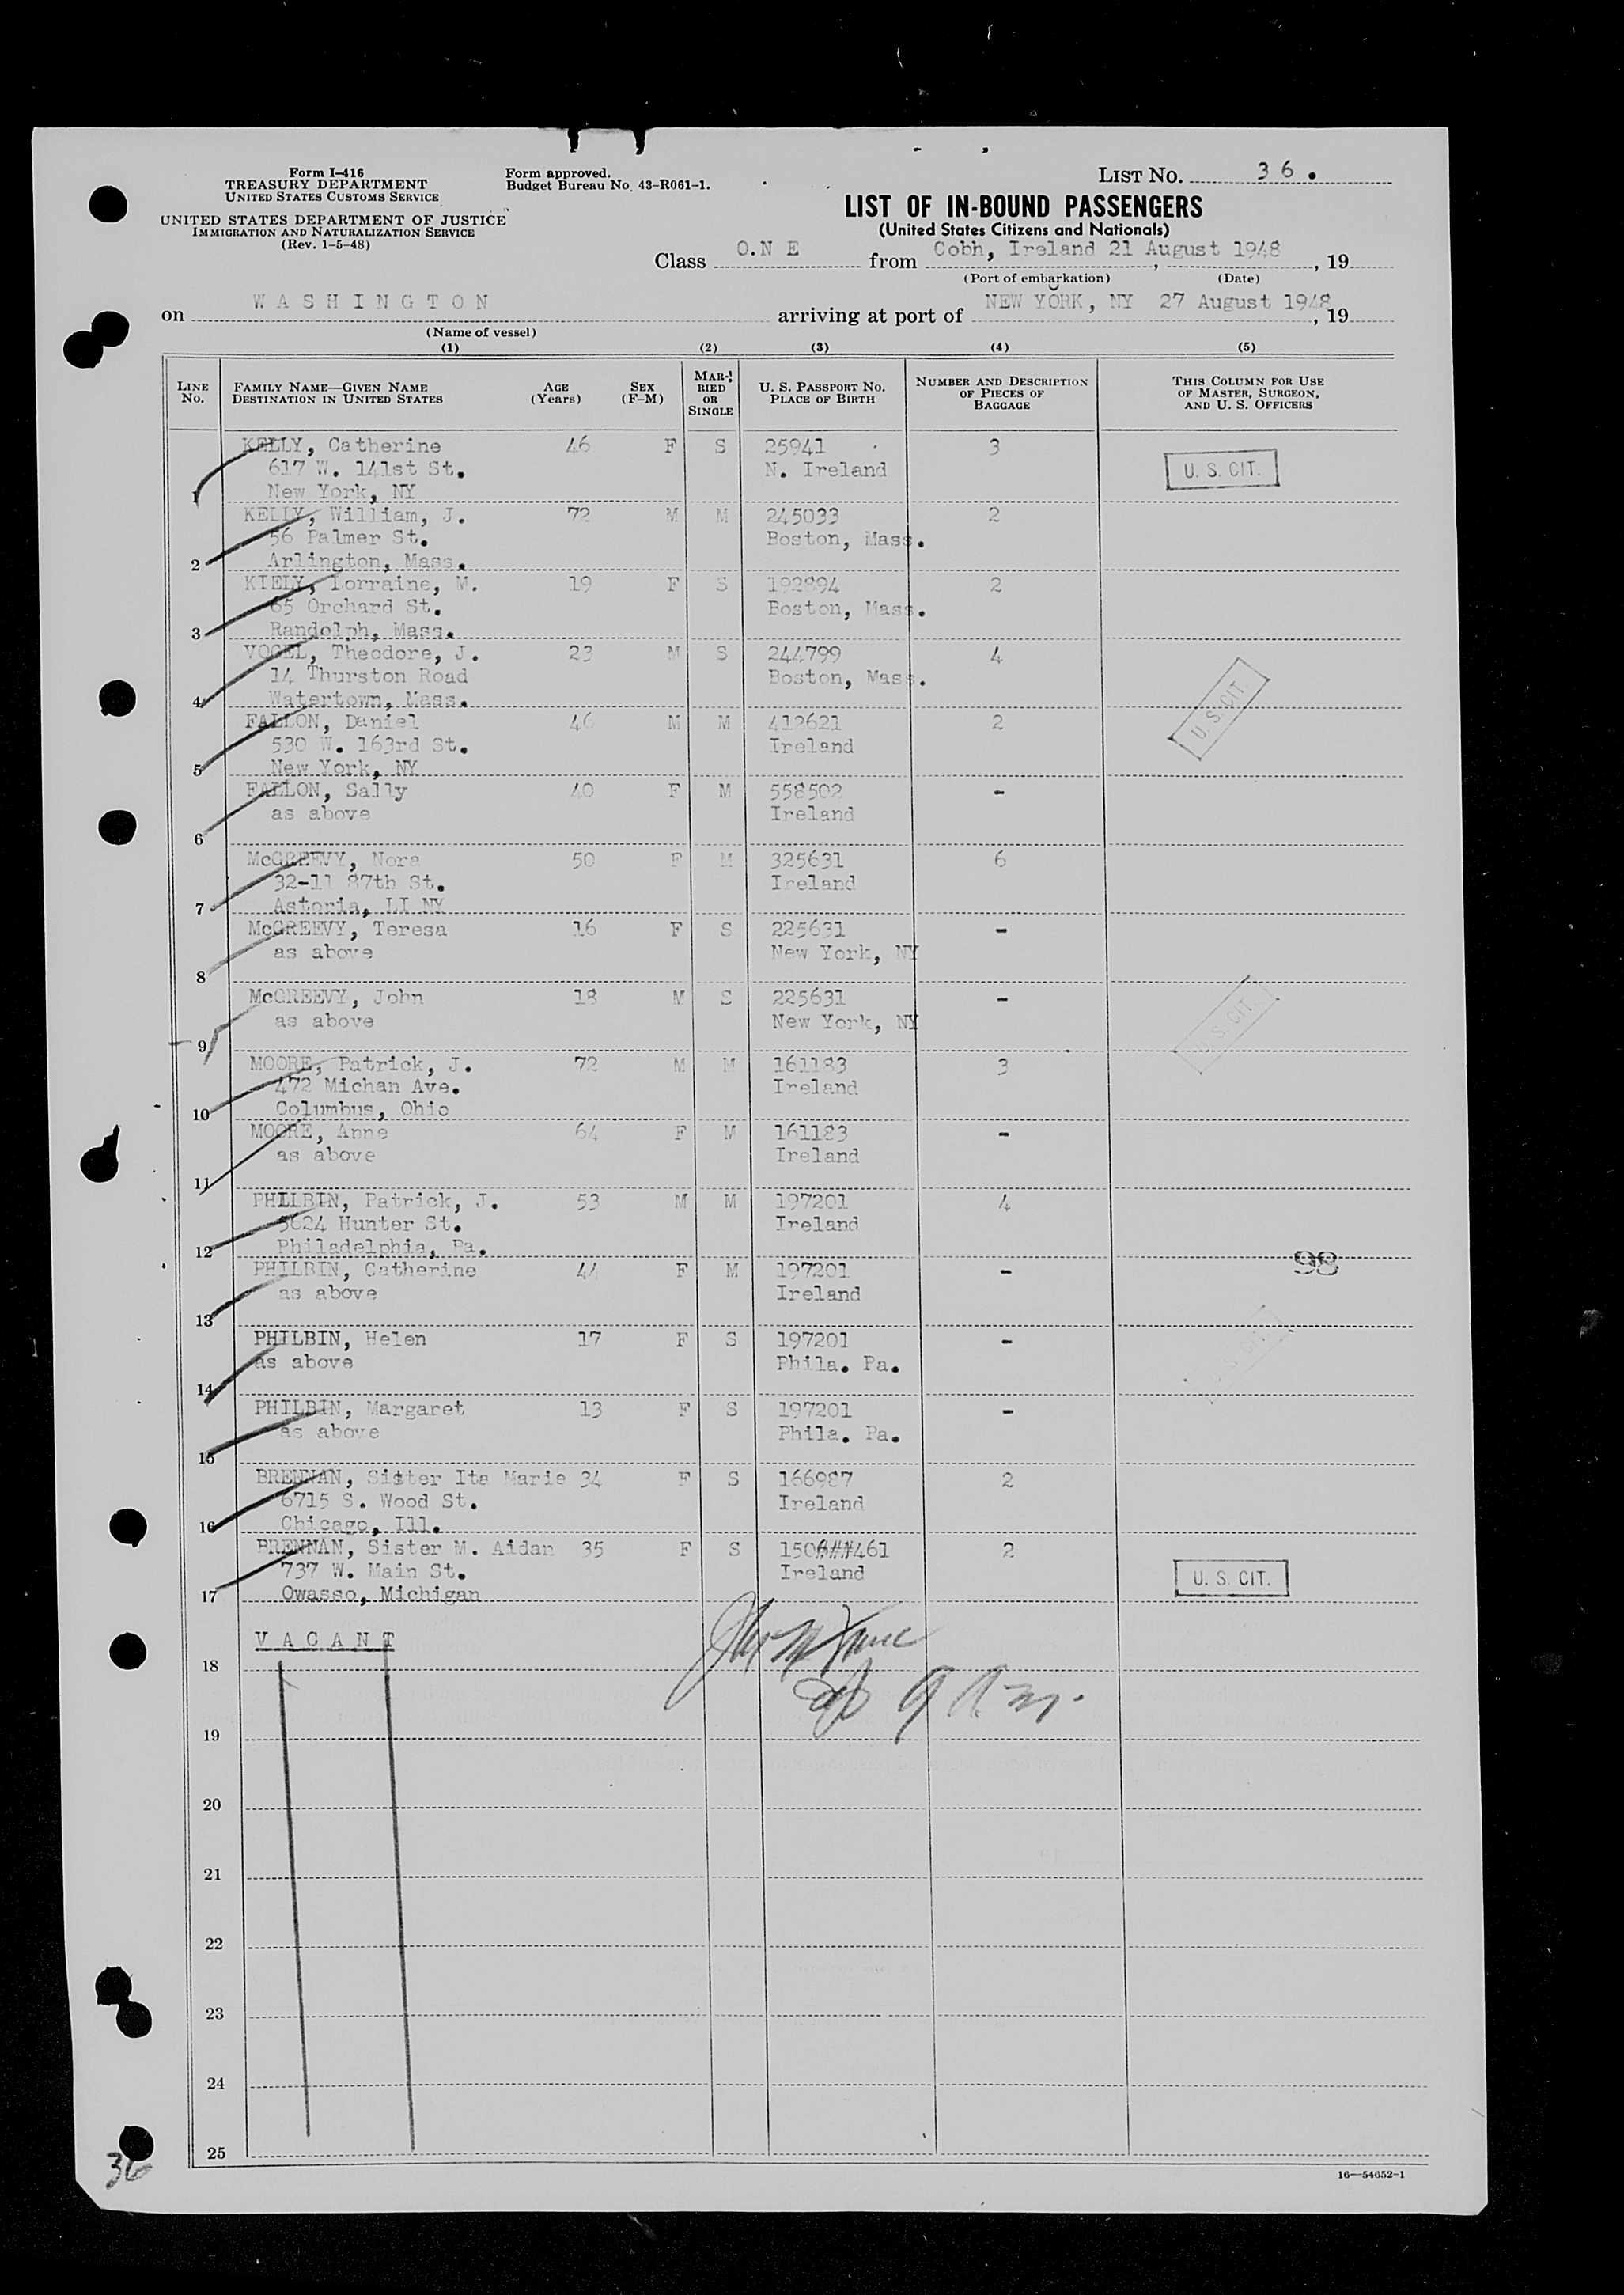 Form I-416
TREASURY DEPARTMENT
UNITED STATES CUSTOMS SERVICE
UNITED STATES DEPARTMENT OF JUSTICE
IMMIGRATION AND NATURALIZATION SERVICE
(Rev. 1-5-48)
Form approved.
Budget Bureau No. 43-R061-1.
LIST No. 36.
LIST OF IN-BOUND PASSENGERS
(United States Citizens and Nationals)
Class O.N E from Cobh, Ireland 21 August 1948, 19
(Port of embarkation) (Date)
on WASHINGTON arriving at port of NEW YORK, NY 27 August 1948, 19
(Name of vessel)
(1) (2) (3) (4) (5)
LINE No. FAMILY NAME—GIVEN NAME DESTINATION IN UNITED STATES AGE (Years) SEX (F-M) MARRIED OR SINGLE U. S. PASSPORT NO. PLACE OF BIRTH NUMBER AND DESCRIPTION OF PIECES OF BAGGAGE THIS COLUMN FOR USE OF MASTER, SURGEON, AND U. S. OFFICERS
KELLY, Catherine 46 F S 25941 3
617 W. 141st St. N. Ireland U. S. CIT.
1 New York, NY
KELLY, William, J. 72 M M 245033 2
56 Palmer St. Boston, Mass.
2 Arlington, Mass.
KIELY, Lorraine, M. 19 F S 192894 2
65 Orchard St. Boston, Mass.
3 Randolph, Mass.
VOGEL, Theodore, J. 23 M S 244799 4
14 Thurston Road Boston, Mass.
4 Watertown, Mass. U. S. CIT.
FALLON, Daniel 46 M M 412621 2
530 W. 163rd St. Ireland
5 New York, NY
FALLON, Sally 40 F M 558502 -
as above Ireland
6
McGREEVY, Nora 50 F M 325631 6
32-11 87th St. Ireland
7 Astoria, LI NY
McGREEVY, Teresa 16 F S 225631 -
as above New York, NY
8
McGREEVY, John 18 M S 225631 -
as above New York, NY U. S. CIT.
9
MOORE, Patrick, J. 72 M M 161183 3
472 Michan Ave. Ireland
10 Columbus, Ohio
MOORE, Anne 64 F M 161183 -
as above Ireland
11
PHILBIN, Patrick, J. 53 M M 197201 4
5624 Hunter St. Ireland
12 Philadelphia, Pa.
98
PHILBIN, Catherine 44 F M 197201 -
as above Ireland
13
PHILBIN, Helen 17 F S 197201 -
as above Phila. Pa.
14
PHILBIN, Margaret 13 F S 197201 -
as above Phila. Pa.
15
BRENNAN, Sister Ita Marie 34 F S 166987 2
6715 S. Wood St. Ireland
16 Chicago, Ill.
BRENNAN, Sister M. Aidan 35 F S 150 461 2
737 W. Main St. Ireland U. S. CIT.
17 Owasso, Michigan
VACANT
18
19
20
21
22
23
24
25
36
16—54652-1